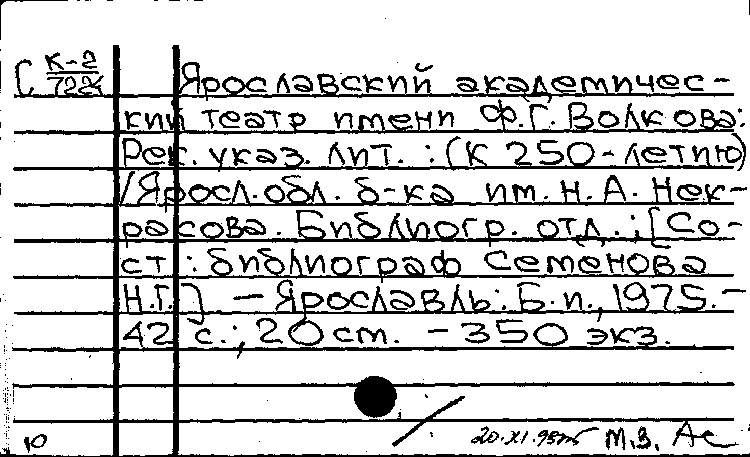 С К-2
7224
Ярославский академичес-
кий театр имени Ф.Г. Волкова:
Рек. указ. лит. : (К 250-летию)
/Яросл. обл. б-ка им. Н. А. Нек-
расова. Библиогр. отд. ; [Со-
ст : библиограф Семёнова
Н.Г.] — Ярославль: Б.и., 1975. —
42 с.; 20 см. — 350 экз.
10
М.З.